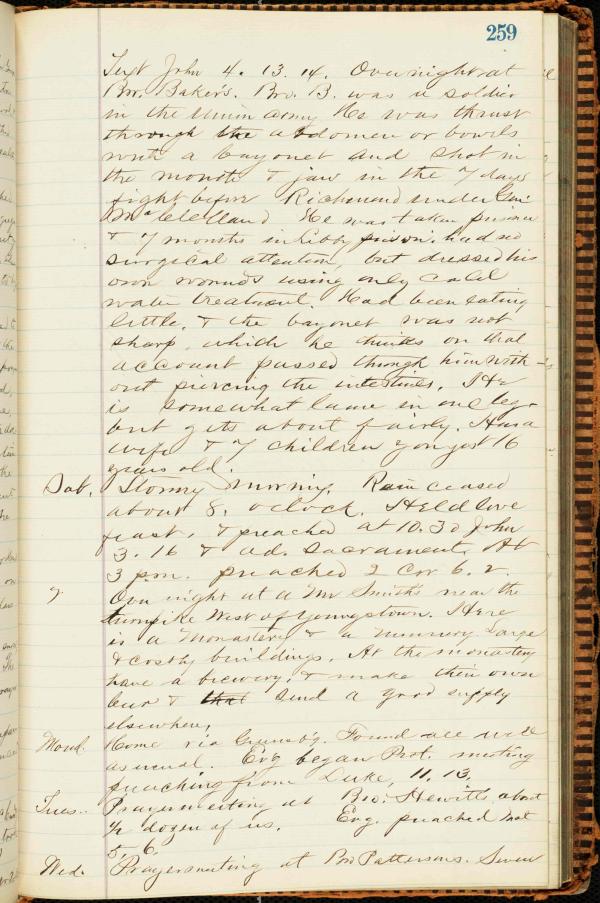 259
Text John 4. 13. 14. Over night at
Bro. Bakers. Bro. B. was a soldier
in the Union army He was thrust
through the abdomen or bowels
with a bayonet and shot in
the mouth & jaw in the 7 days
fight before Richmond under Gen.
McClelland He was taken prisoner
& 7 months in Libby prison. had no
surgical attention, but dressed his
own wounds using only cold
water treatment. Had been eating
little, & the bayonet was not
sharp, which he thinks on that
account passed through him with-
out piercing the intestines. He
is somewhat lame in one leg-
but gets about fairly. Has a
wife & 7 children yongest 16
years old.
Sat. Stormy morning. Rain ceased
about 8. oclock. Held love
feast. & preached at 10.30 John
3. 16 & ad. Sacrament. At
3 p.m. preached 2 Cor 6. 2.
Over night at a Mr Smiths near the
turnpike West of Youngstown. Here
is a Monastery & a nunnery Large
& costly buildings. At the monastery
have a brewery. & make their own
beer & that send a good supply
elsewhere,
Mond. Home via Greensb'g. Found all well
as usual. Ev'g began Prot. meeting
preaching from Luke, 11. 13.
Tues.. Prayermeeting at Bro. Hewitts about
½ dozen of us. Evg. preached Mat
5, 6.
Wed. Prayermeeting at Bro Pattersons. Seven